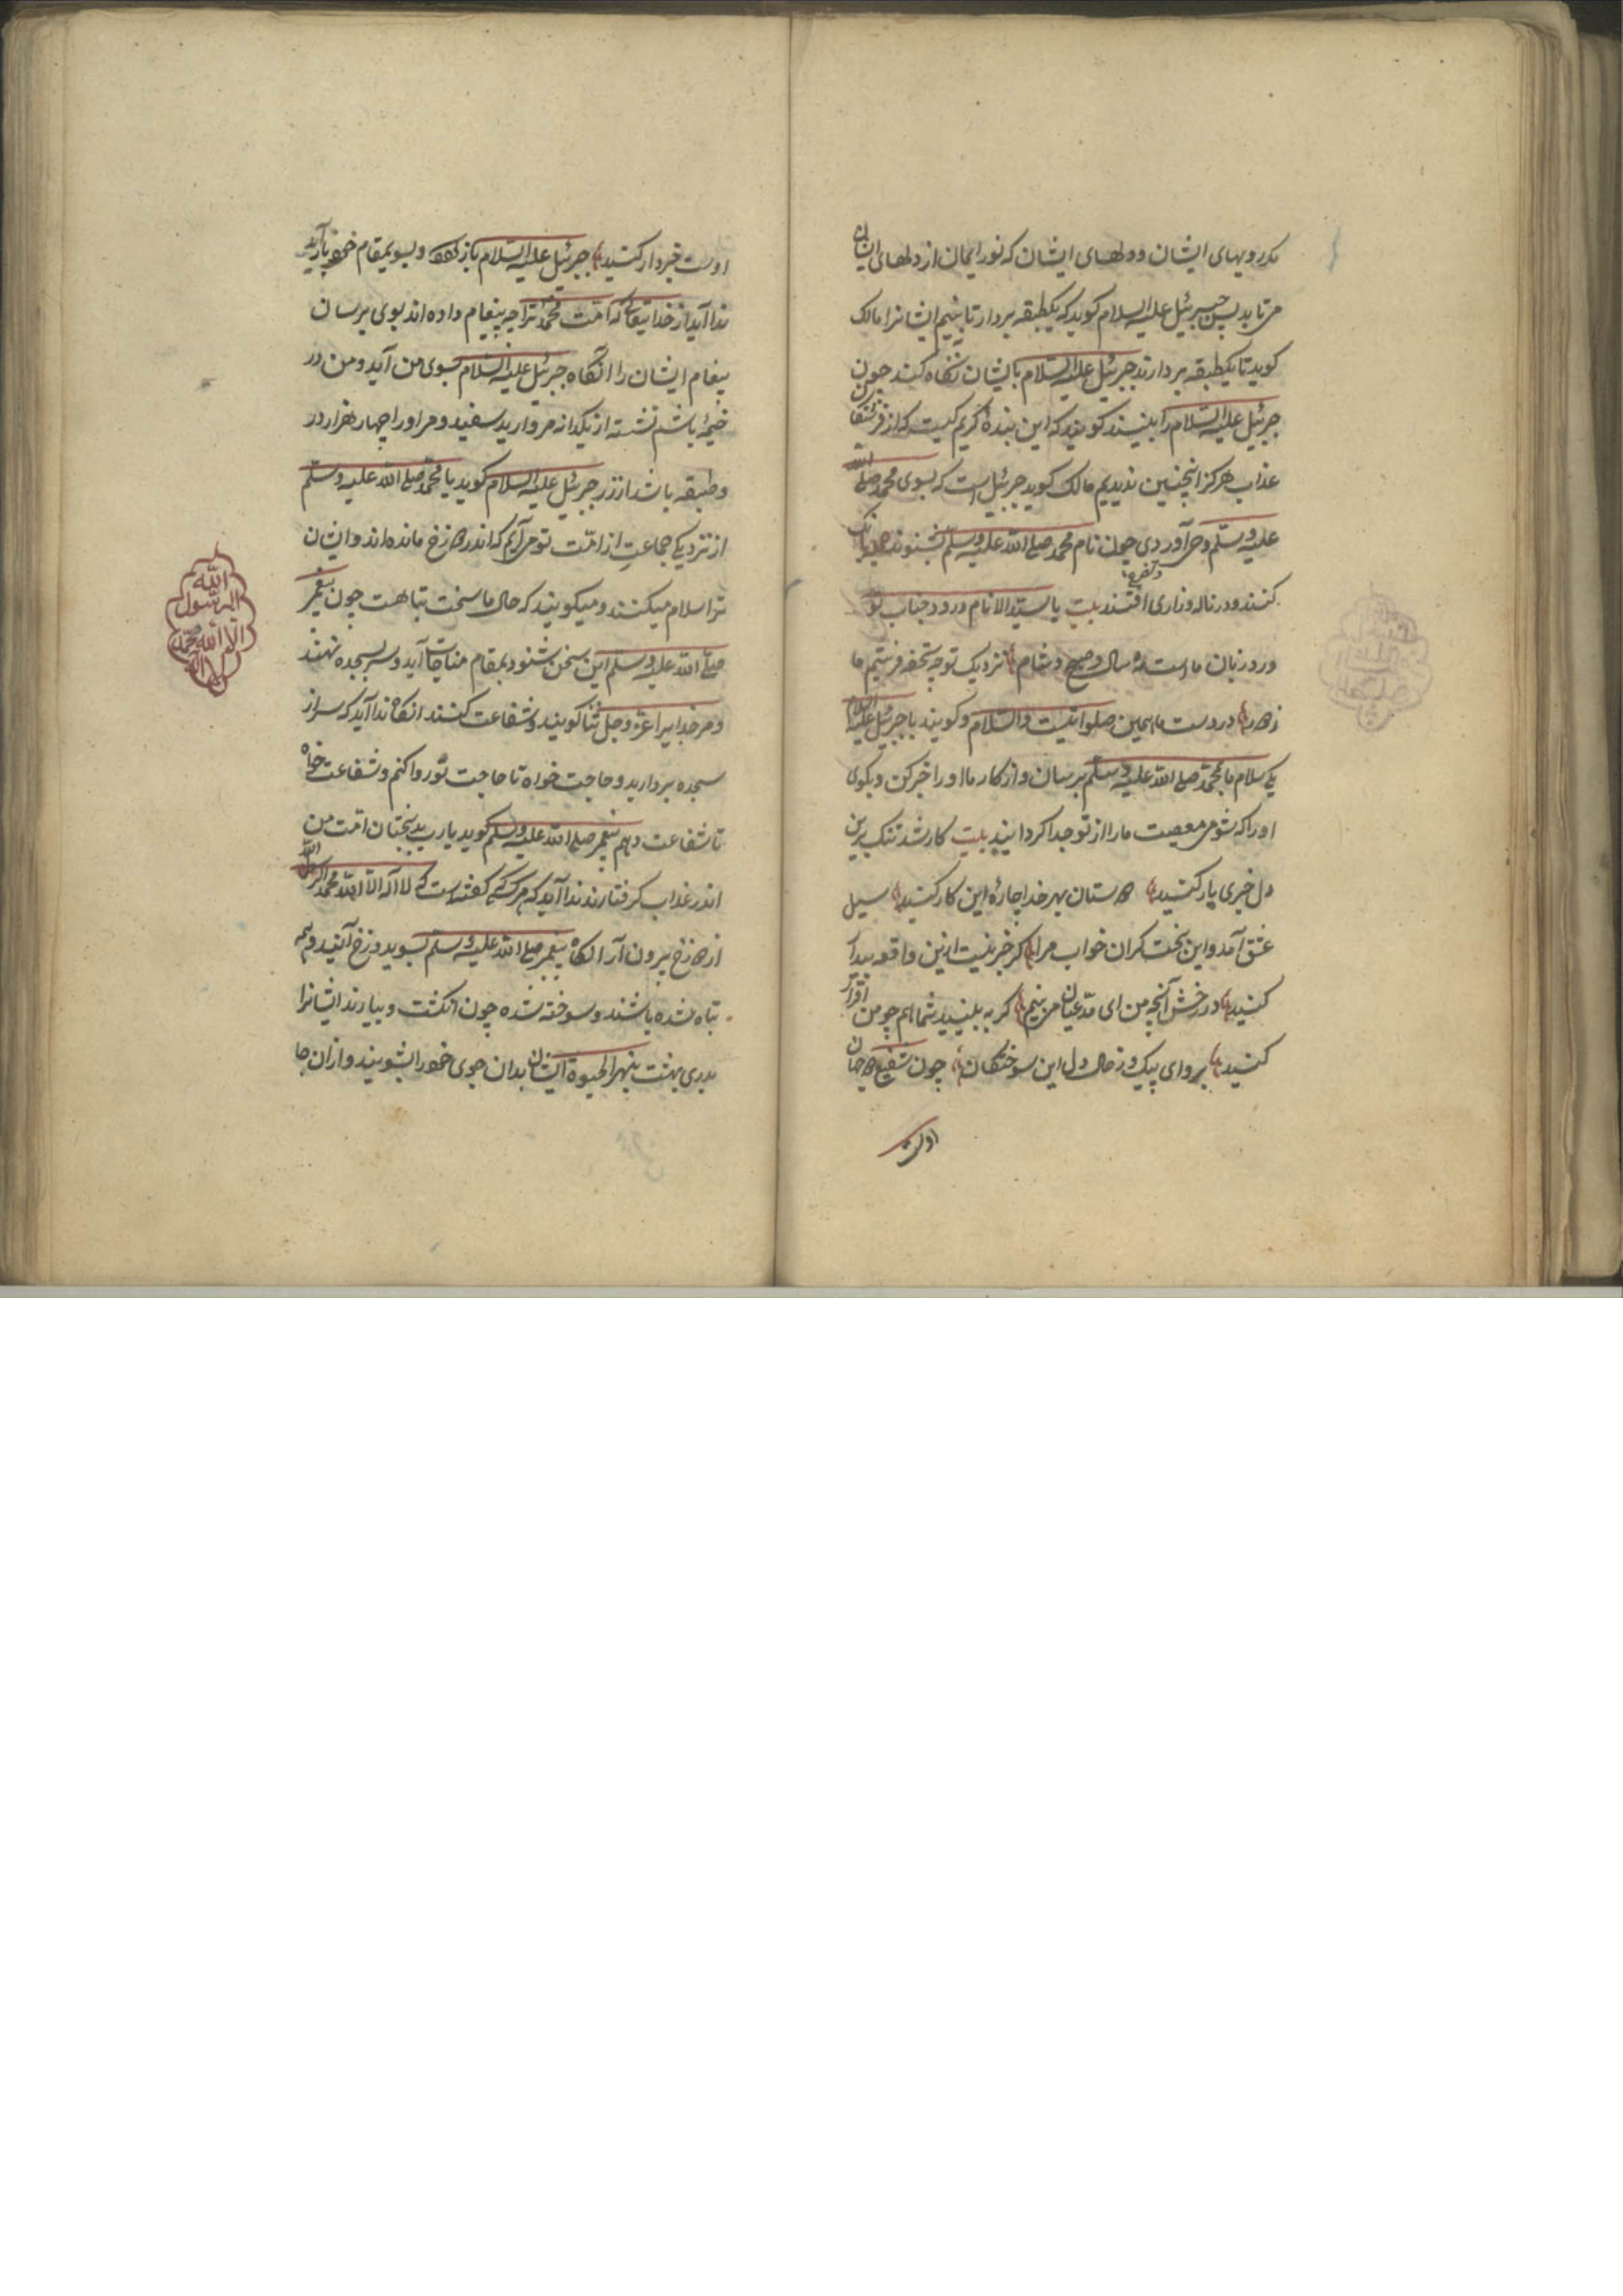 مکر رویهای ایشان و دلهای ایشان که نور ایمان از دلهای ایشان
می تابد پس جبرئیل علیه السلام کوید که یکطبقه بردار تا بینم ایشانرا مالک
کوید تا یکطبقه بردارند جبرئیل علیه السلام بایشان نگاه کند چون
جبرئیل علیه السلام را ببینند کویند که این بندهٔ کریم کیست که از فرشتکان
عذاب هرکز اینچنین ندیدیم مالک کوید جبرئیل است که بسوی محمد صلی الله
علیه وسلم وحی آوردی چون نام محمد صلی الله علیه وسلم بشنوند فریاد
کنند و در ناله و زاری افتند بیت یا سید الانام درود جناب تو
ورد زبان ماست مه و سال و صبح و شام نزدیک تو چه تحفه فرستیم ما
ز دور در دست ما همین صلواتیست والسلام و کویند یا جبرئیل علیه السلام
یک سلام ما بمحمد صلی الله علیه وسلم برسان و از کار ما او را خبر کن و بکوی
او را که شومی معصیت ما را از تو جدا کردانید بیت کار شد تنک برین
دل خبری یار کنید دوستان بهر خدا چارهٔ این کار کنید سیل
عشق آمد و این بخت کران خواب مرا کر خبر نیست ازین واقعه بیدار
کنید در رخش آنچه من ای مدعیان می بینم کر به بینید شما هم چو من اقرار
کنید برو ای پیک و ز حال دل این سوختکان چون شفیع دو جهان
اوست
اوست خبردار کنید جبرئیل علیه السلام باز کردد و بسوی مقام خود باز آید
ندا آید از خدایتعالی که امت محمد ترا چه پیغام داده اند بوی برسان
پیغام ایشان را آنگاه جبرئیل علیه السلام بسوی من آید و من در
خیمهٔ باشم نشسته از یکدانه مروارید سفید و مر او را چهار هزار در
و طبقه باشد از زر جبرئیل علیه السلام کوید یا محمد صلی الله علیه وسلم
از نزدیک جماعت از امت تو می آیم که اندر دوزخ مانده اند و ایشان
ترا سلام میکنند و میکویند که حال ما سخت تباهست چون پیغمبر
صلی الله علیه وسلم این سخن بشنود بمقام مناجات آید و سر بسجده نهند
و مر خدایرا عز وجل ثنا کویند و شفاعت کنند آنکاه ندا آید که سر از
سجده بردارید و حاجت خواه تا حاجت تو روا کنم و شفاعت خواه
تا شفاعت دهم پیغمبر صلی الله علیه وسلم کوید یا رب بدبختان امت من
اندر عذاب کرفتارند ندا آید که هر کسی که کفته است که لا اله الا الله محمد رسول الله
از دوزخ بیرون آر آنکاه پیغمبر صلی الله علیه وسلم بسوی دوزخ آیند و همه
تباه شده باشند و سوخته شده چون انکشت و بیارند ایشانرا
بدر بهشت بنهر الحیوة ایشان بدان جوی خود را بشویند و از ان جا
لا اله الا الله محمد رسول الله